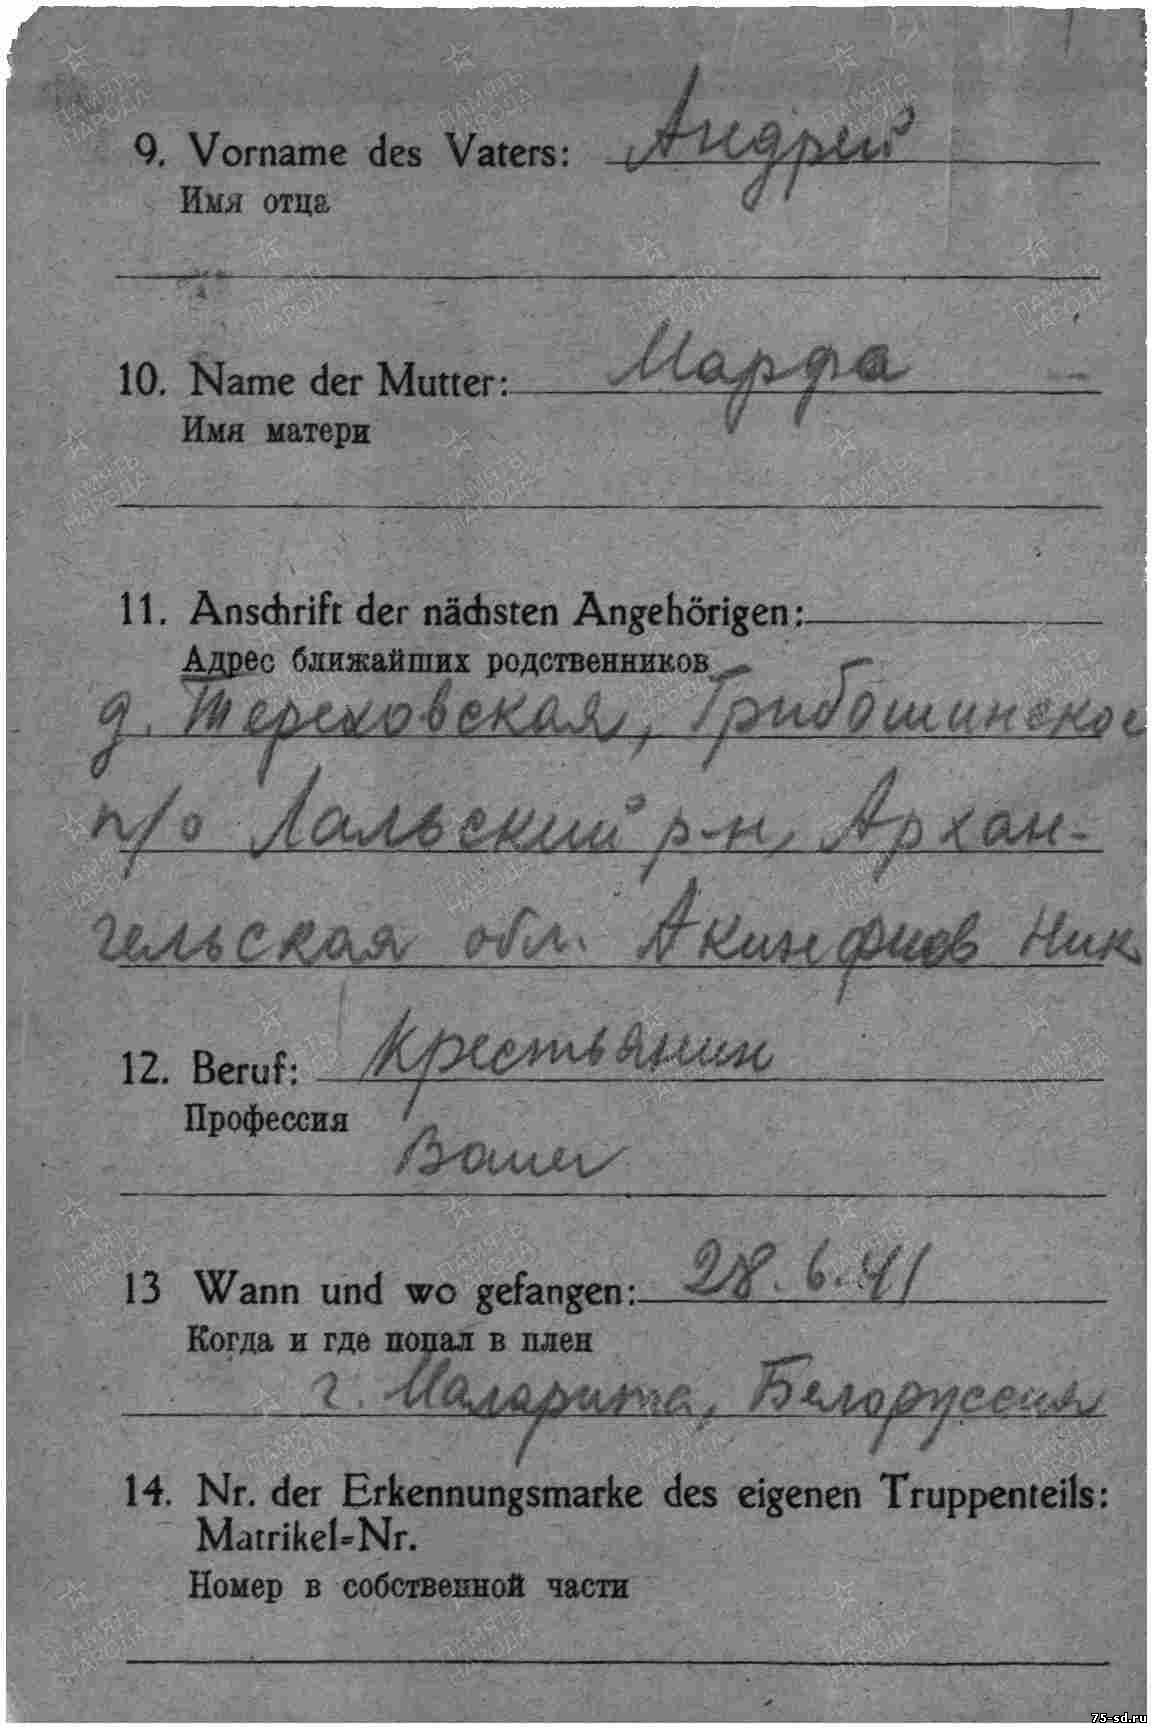 9. Vorname des Vaters: Андрей
Имя отца
10. Name der Mutter: Марфа
Имя матери
11. Anschrift der nächsten Angehörigen:
Адрес ближайших родственников
д. Тереховская, Грибошинское
п/о Лальский р-н, Архан-
гельская обл. Акинфиев Ник
12. Beruf: Крестьянин
Профессия
Bauer
13 Wann und wo gefangen: 28.6.41
Когда и где попал в плен
г. Маларита, Белоруссия
14. Nr. der Erkennungsmarke des eigenen Truppenteils:
Matrikel=Nr.
Номер в собственной части
75-sd.ru